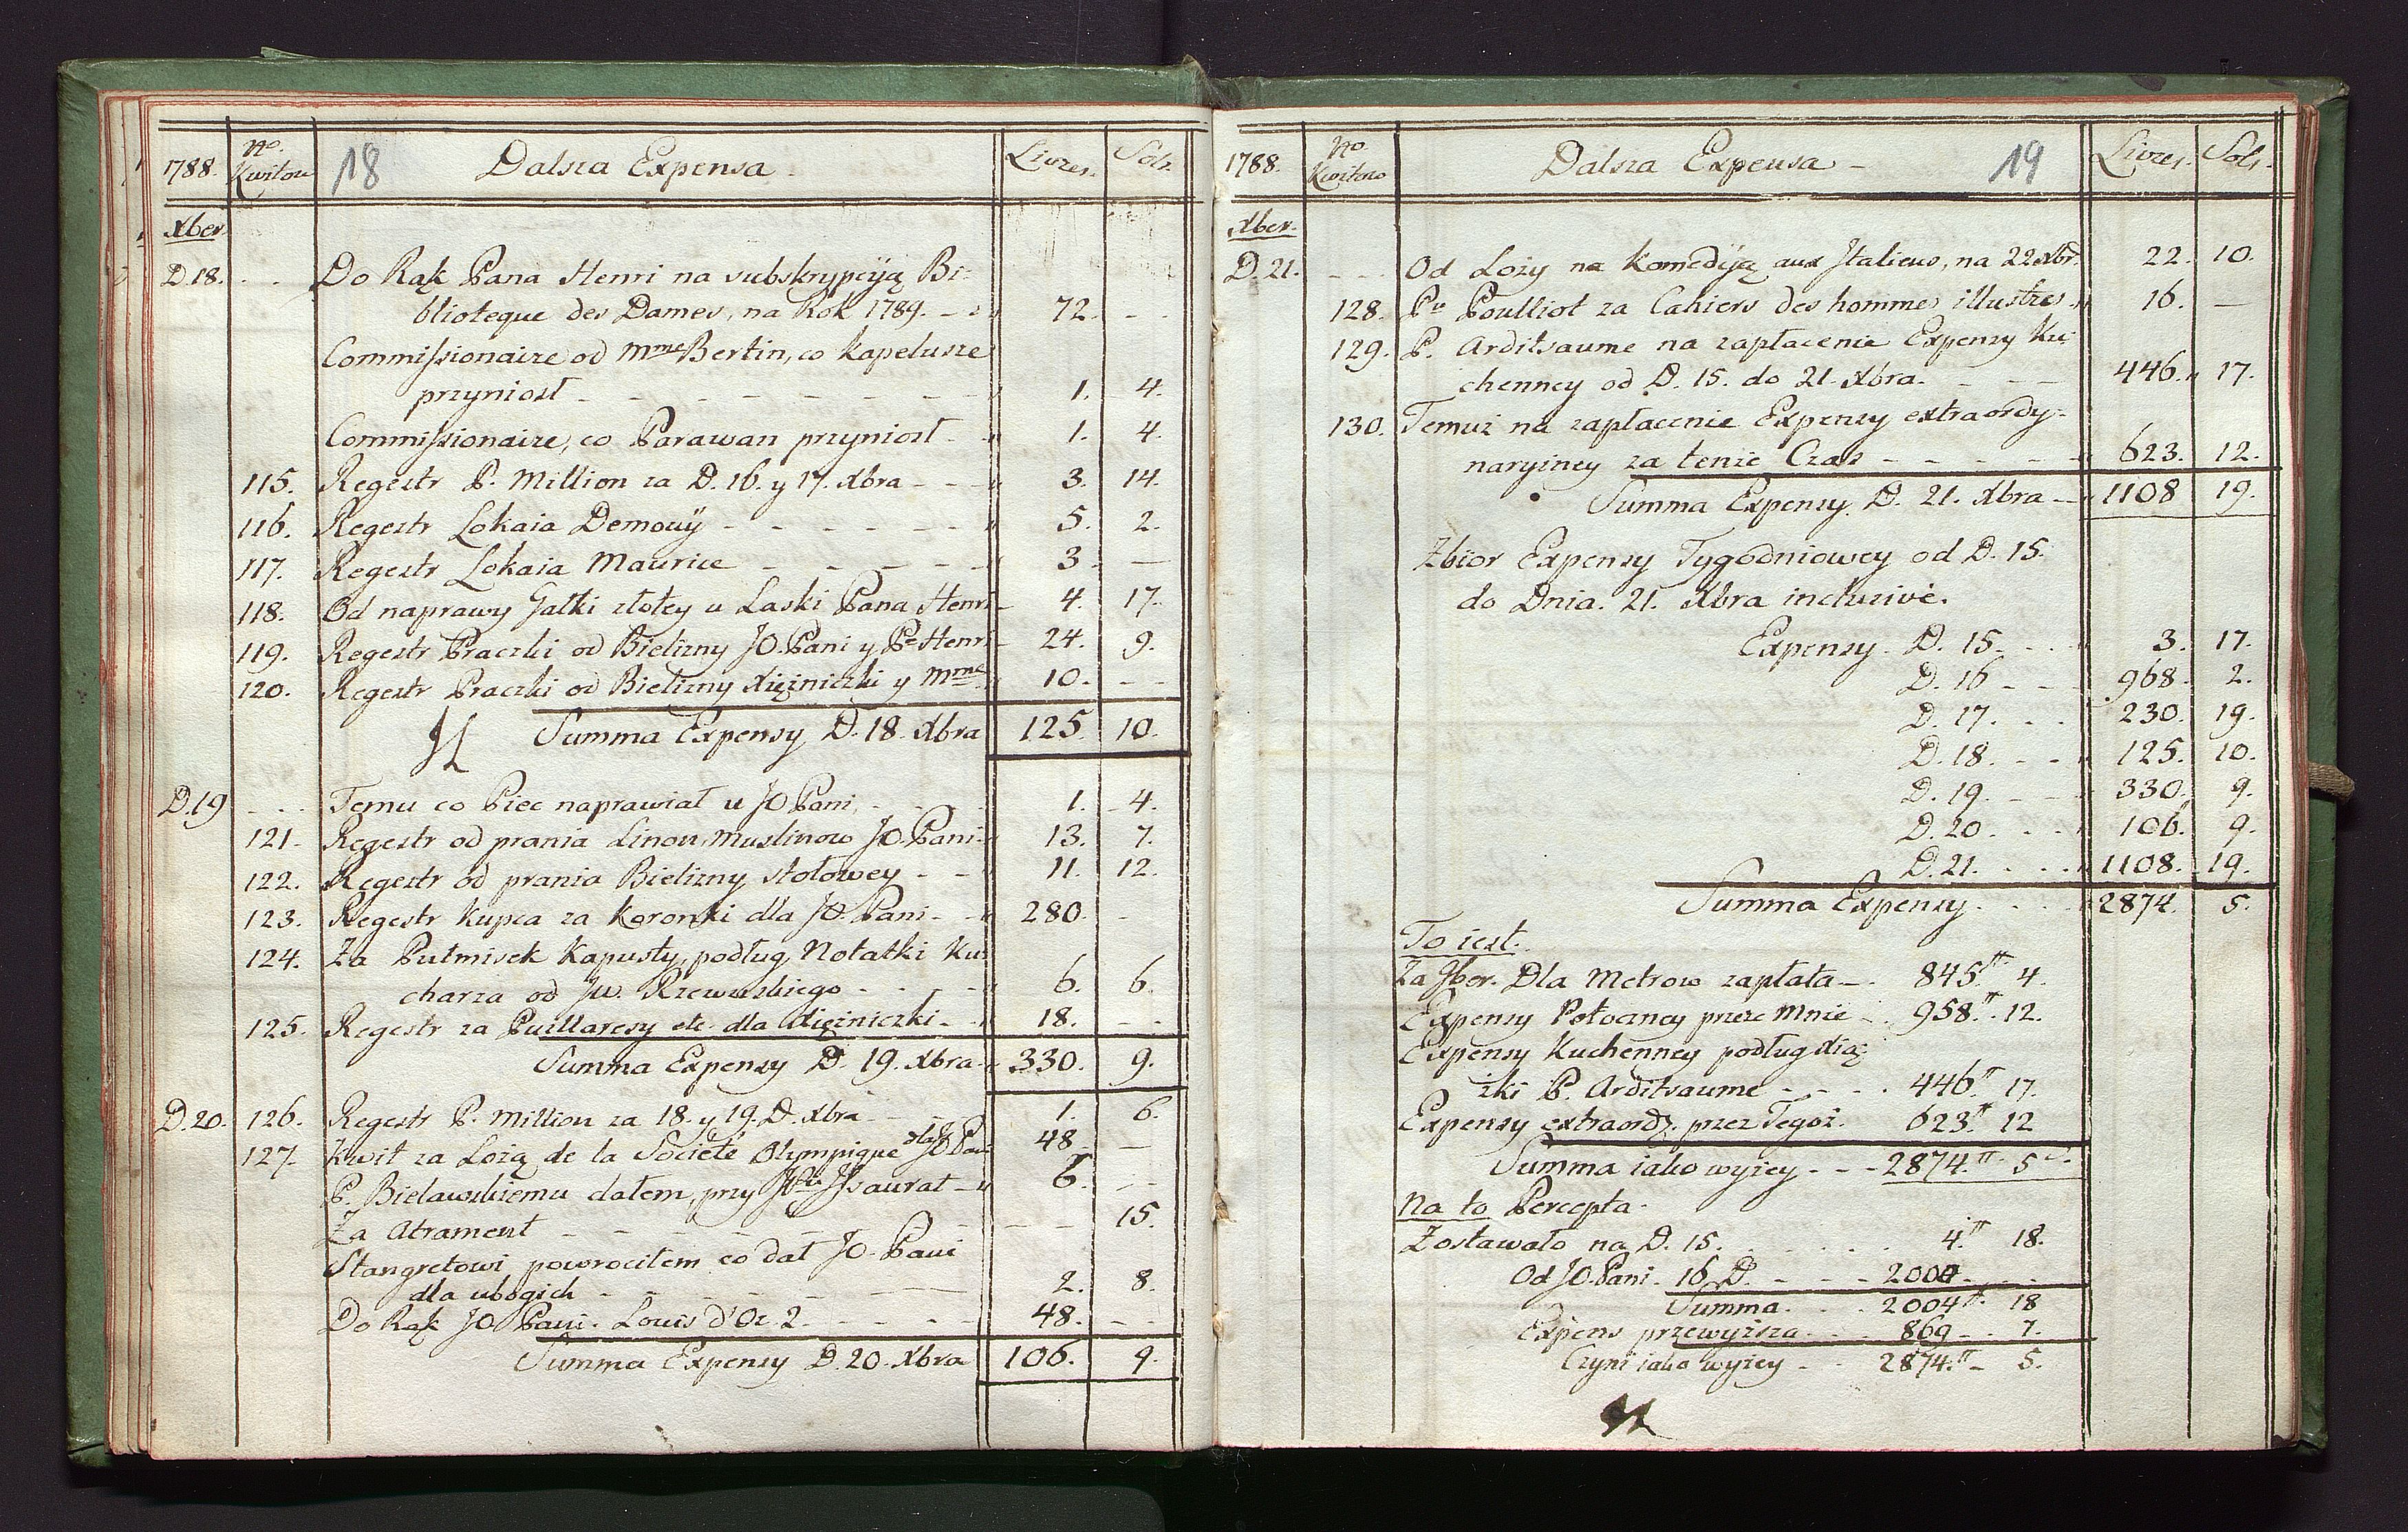 1788. No. Kwitow 18 Dalsza Expensa. Livres. Sols.
Xber
D. 18. . . Do Rąk Pana Henri na subskrypcyją Bi-
blioteque des Dames, na Rok 1789. - - 72. - -
Commissionaire od Mme Bertin, co kapelusze
przyniosł - - - - - - - 1. 4.
Commissionaire, co Parawan przyniosł - - 1. 4.
115. Regestr P. Million za D. 16. y 17. Xbra - - - 3. 14.
116. Regestr Lokaia Demouÿ - - - - - - 5. 2.
117. Regestr Lokaia Maurice - - - - - 3. —
118. Od naprawy Gałki złotey u Laski Pana Henri - 4. 17.
119. Regestr Praczki od Bielizny JO. Pani y Pa Henri - 24. 9.
120. Regestr Praczki od Bielizny Xiężniczki y Mme 10. - -
Summa Expensy D. 18. Xbra 125. 10.
D. 19 - - - Temu co Piec naprawiał u JO Pani. - - - 1. 4.
121. Regestr od prania Linon, Muslinow JO. Pani - 13. 7.
122. Regestr od prania Bielizny stołowey - - - 11. 12.
123. Regestr Kupca za Koronki dla JO. Pani - - 280. -
124. Za Pułmisek Kapusty, podług Notatki Ku-
charza od Jw. Rzewuskiego - - - - - 6. 6.
125. Regestr za Pullaresy etc. dla Xiężniczki - - 18. - -
Summa Expensy D. 19. Xbra - 330. 9.
D. 20. 126. Regestr P. Million za 18. y 19. D. Xbra - - - 1. 6.
127. Kwit za Lożą de la Societé Olympique dla JO Pani 48 - —
P. Bielawskiemu dałem, przy Jsaurat - 6. - -
Za Atrament - - - - - - - - - 15.
Stangretowi powrociłem co dał JO. Pani
dla ubogich - - - - - - - 2. 8.
Do Rąk JO Pani. Louis d'Or. 2. - - - - - 48. - -
Summa Expensy D. 20. Xbra 106. 9.
1788. No. Kwitow Dalsza Expensa - 19 Livres. Sols.
Xber.
D. 21. - - - Od Loży na Komedyją aux Italiens, na 22 Xbr. 22. 10.
128. Pu Poulliot za Cahiers des hommes illustres - 16. —
129. P. Arditsaume na zapłacenie Expensy Ku-
chenney od D. 15. do 21. Xbra. - - - 446. 17.
130. Temuż na zapłacenie Expensy extraordy-
naryiney za tenże Czas - - - - - 623. 12.
Summa Expensy D. 21. Xbra - 1108 19.
Zbior Expensy Tygodniowey od D. 15.
do Dnia. 21. Xbra inclusivè.
Expensy. D. 15. - . - 3. 17.
D. 16 - - - 968. 2.
D. 17. . . 230. 19.
D. 18. - - 125. 10.
D. 19. - - - 330. 9.
D. 20. . - 106. 9.
D. 21. . . . 1108. 19.
Summa Expensy . . . 2874. 5.
To iest.
Za 9ber. Dla Metrow zapłata -. 845.tt 4.
Expensy Potoczney przez Mnie . 958.tt 12.
Expensy Kuchenney podług Xią-
żki P. Arditsaume - - - . 446.tt 17.
Expensy extraordy. przez Tegoż. 623.tt 12
Summa iako wyżey - - - 2874.tt 5 s.
Na to Percepta.
Zostawało na D. 15. . . . . . 4.tt 18.
Od JO. Pani. 16 D. - - - 2000 - - -
Summa. . . 2004tt. 18
Expens przewyższa. . . 869 - . 7.
Czyni iako wyżey - - 2874.tt - 5.